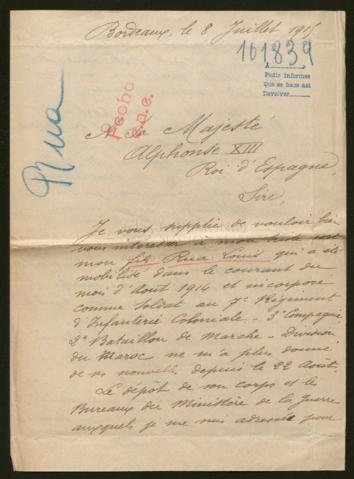 Bordeaux, le 8 Juillet 1915
101839
Pedir informes
Que se haga así
Devolver
Rua
Fecho
A Sa Majesté
Alphonse XIII
Roi d'Espagne,
Sire,
Je vous supplie de vouloir bien
vous intéresser à mon
mon fils Rua Louis qui a été
mobilisé dans le courant du
mois d'Août 1914 et incorporé
comme soldat au 7e Régiment
d'Infanterie Coloniale - 3e Compagnie
2e Bataillon de Marche - Division
du Maroc ne m'a plus donné
de ses nouvelles depuis le 22 Août.
Le dépôt de son corps et les
Bureaux du Ministère de la Guerre
auxquels je me suis adressée pour